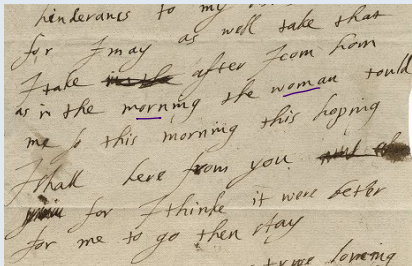 hinderances to my
for I may as well take that
I take after I com hom
as in the morning the woman tould
me so this morning this hoping
I shall here from you
for I thinke it were better
for me to go then stay
trwe loving